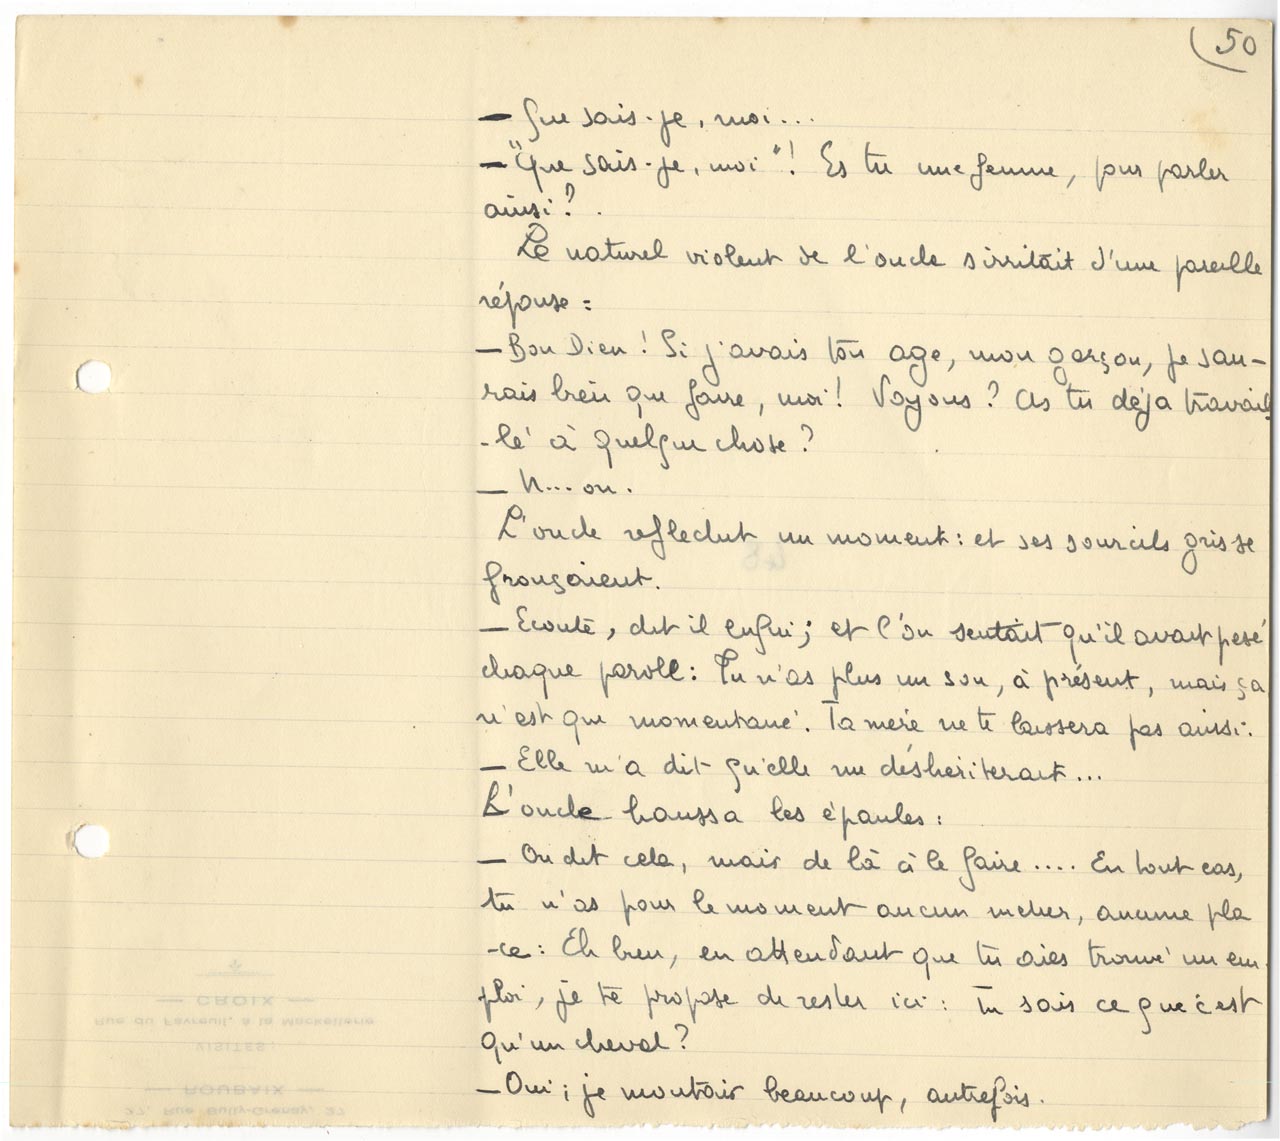 50
— Que sais-je, moi...
— "Que sais-je, moi"! Es tu une femme, pour parler
ainsi?
Le naturel violent de l'oncle s'irritait d'une pareille
réponse :
— Bon Dieu! Si j'avais ton age, mon garçon, je sau-
rais bien que faire, moi! Voyons? As tu déja travail
-lé à quelque chose?
— N...on.
L'oncle reflechit un moment : et ses sourcils gris se
fronçaient.
— Ecoute, dit il enfin; et l'on sentait qu'il avait pesé
chaque parole : Tu n'as plus un sou, à présent, mais ça
n'est que momentané. Ta mère ne te laissera pas ainsi.
— Elle m'a dit qu'elle me déshériterait...
L'oncle haussa les épaules :
— On dit cela, mais de là à le faire .... En tout cas,
tu n'as pour le moment aucun metier, aucune pla
-ce : Eh bien, en attendant que tu aies trouvé un em-
ploi, je te propose de rester ici : Tu sais ce que c'est
qu'un cheval?
— Oui; je montais beaucoup, autrefois.
CROIX
Rue du Favreuil, à la Mackellerie
VISITES:
ROUBAIX
27, Rue Bully-Grenay, 27
48